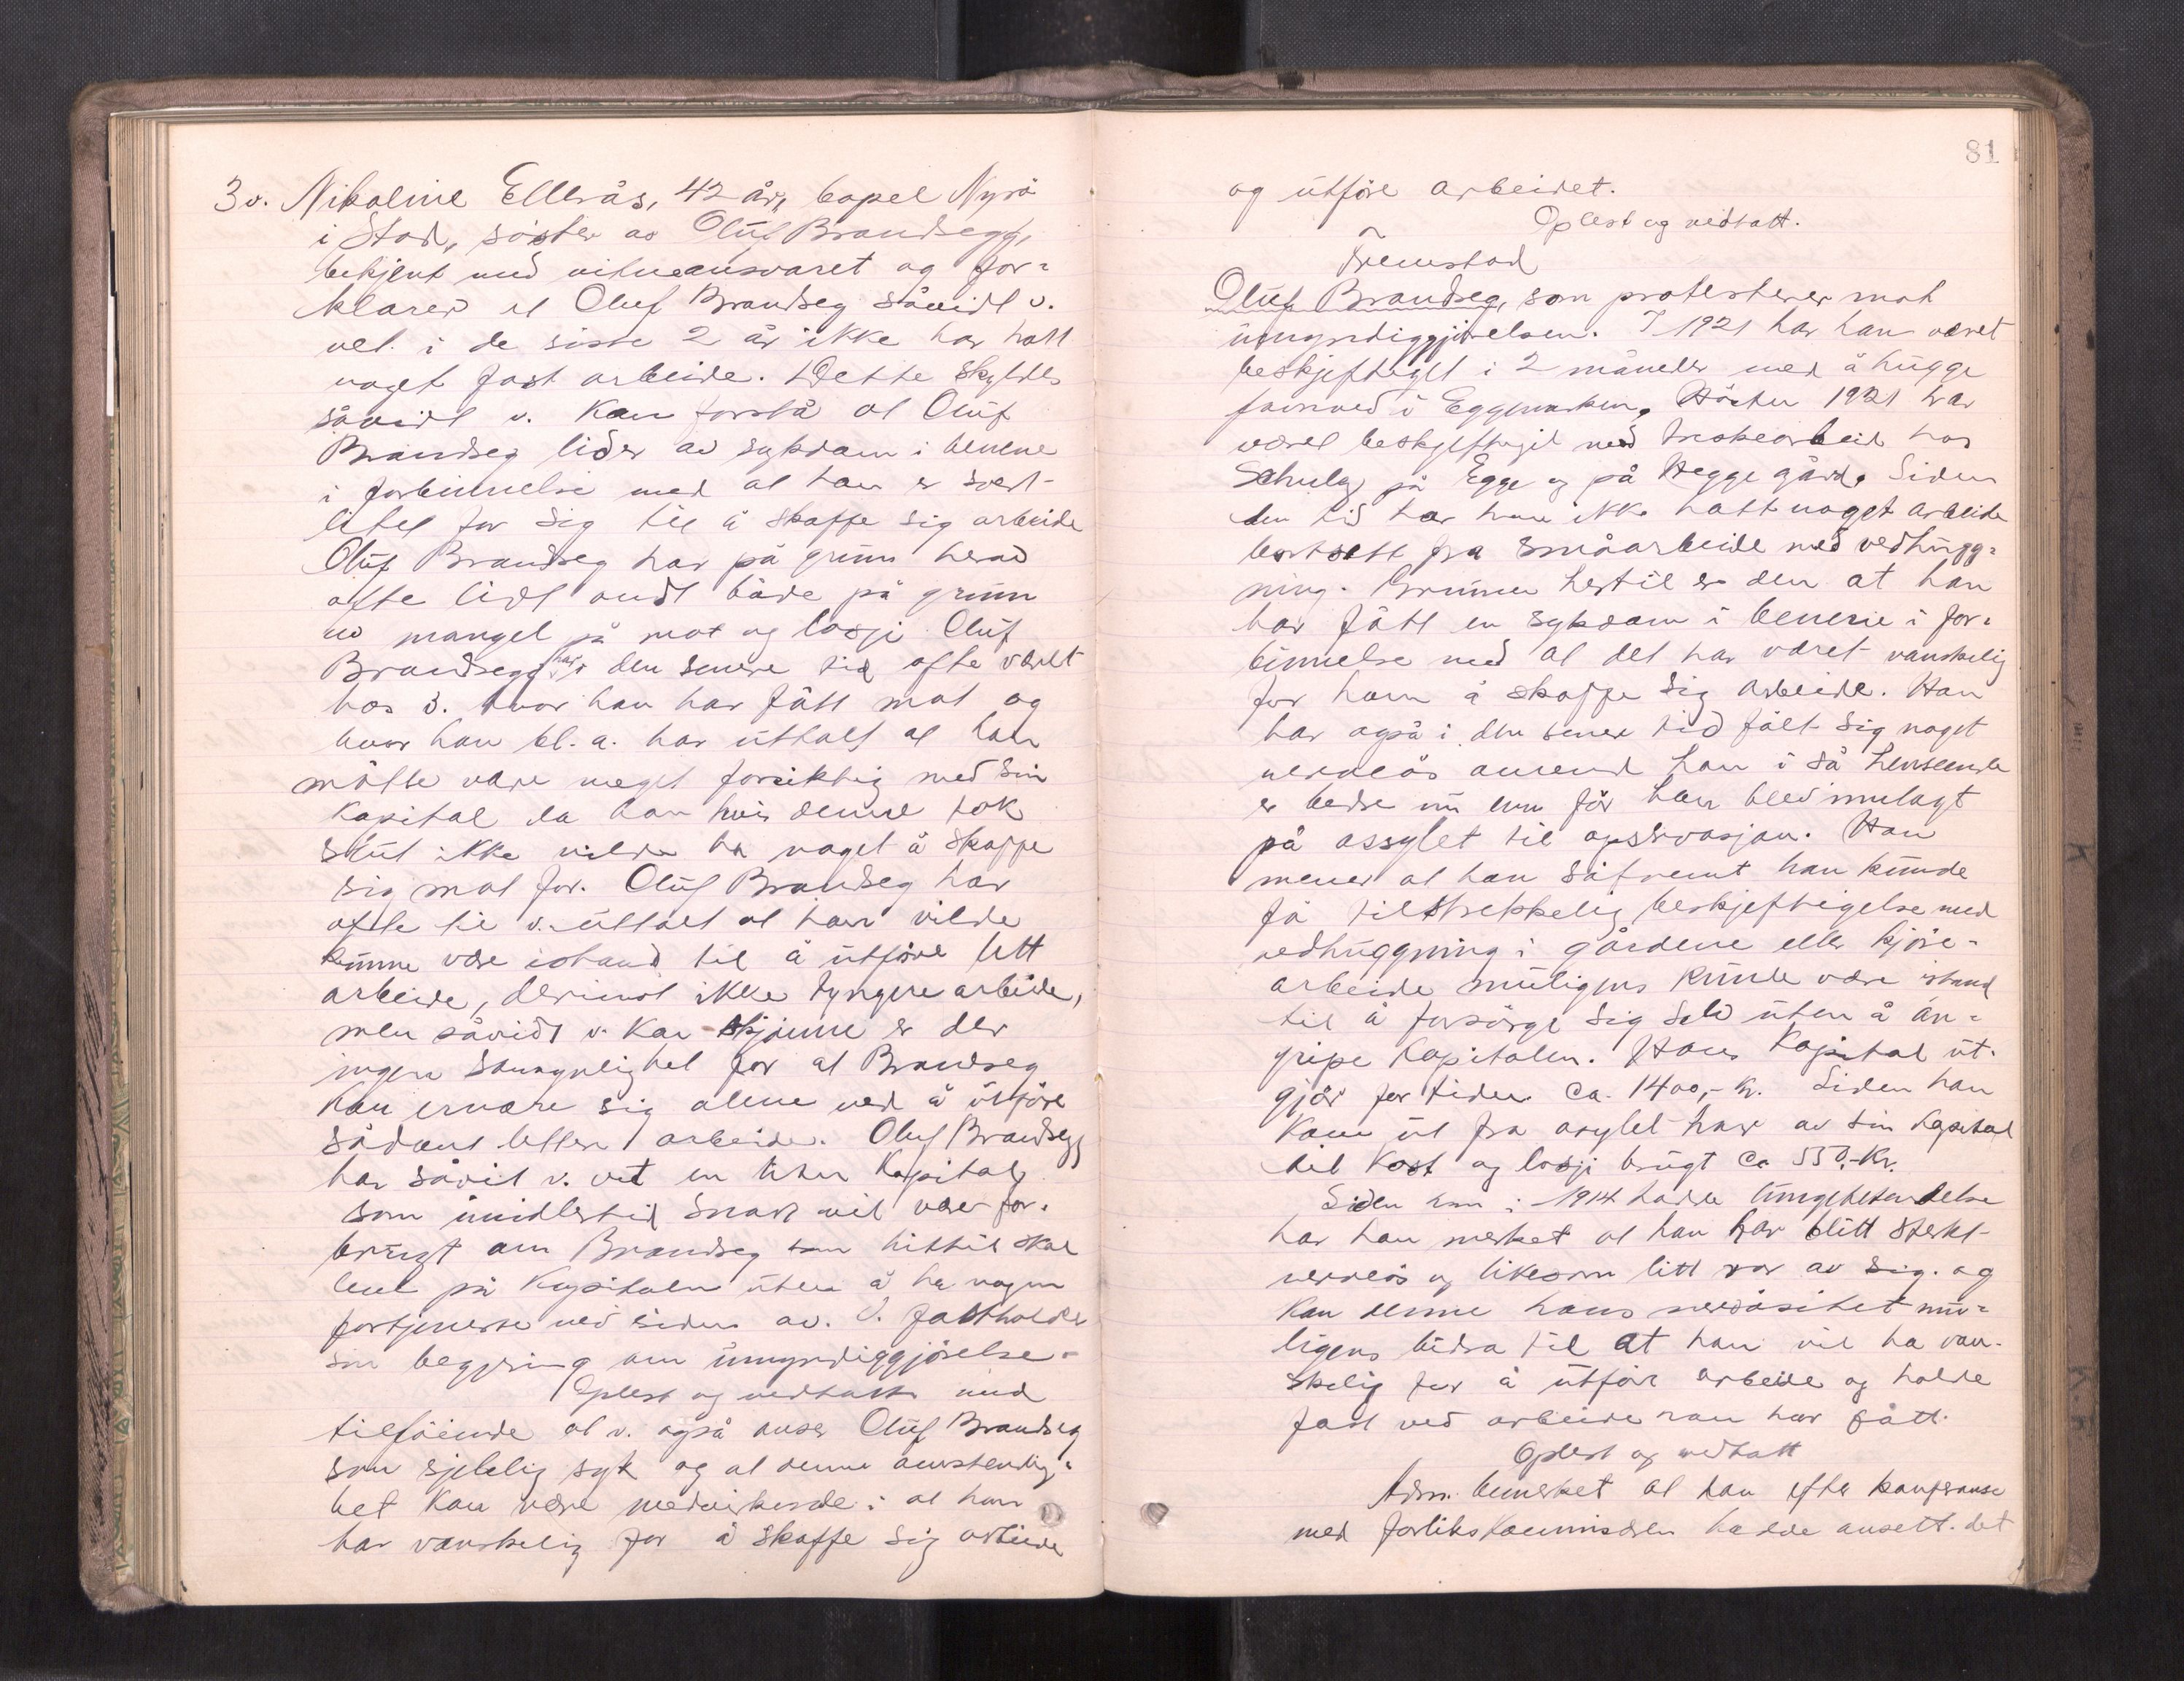 3 v. Nikoline Ellerås, 42 år, bopel Nyrö
i Stod, söster av Oluf Brandsegg,
bekjent med vitneansvaret og for-
klarer at Oluf Brandseg såvidt v.
vet i de siste 2 år ikke har hatt
noget fast arbeide. Dette skyldes
såvidt v. kan forstå at Oluf
Brandseg lider av sykdom i benene
i forbinnelse med at han er svert
litel for sig til å skaffe sig arbeide
Oluf Brandseg har på grunn herav
ofte lidt ondt både på grunn
av mangel på mat og losji. Oluf
Brandsegg har i den senere tid ofte været
hos v. hvor han har fått mat og
hvor han bl. a. har uttalt at han
måtte være meget forsiktig med sin
kapital da han hvis denne tok
slut ikke vilde ha noget å skaffe
sig mat for. Oluf Brandseg har
ofte til v. uttalt at han vilde
kunne være istand til å utföre lett
arbeide, derimot ikke tyngere arbeide,
men såvidt v. kan skjönne er der
ingen sannynlighet for at Brandseg
kan ernære sig alene ved å utföre
sådant lettere arbeide. Oluf Brandsegg
har såvit v. vet en liten kapital,
som imidlertid snart vil være for-
brugt om Brandseg som hittil skal
leve på kapitalen uten å ha nogen
fortjeneste ved siden av. V. fastholder
sin begjering om umyndiggjörelse.
Oplest og vedtatt med
tilföiende at v. også anser Oluf Brandseg
som sjelelig syk og at denne omstendig-
het kan være medvirkende i at han
har vanskelig for å skaffe sig arbeide
81
og utföre arbeidet.
Oplest og vedtatt.
Fremstod
Oluf Brandseg, som protesterer mot
umyndiggjörelsen. I 1921 har han været
beskjeftiget i 2 måneder med å hugge
favnved i Eggemarken. Hösten 1921 har
været beskjeftiget med treskearbeid hos
Schulz på Egge og på Hegge gård. Siden
den tid har han ikke hatt noget arbeide
bortsett fra småarbeide med vedhugg-
ning. Grunnen hertil er den at han
har fått en sykdom i benene i for-
binnelse med at det har været vanskelig
for ham å skaffe sig arbeide. Han
har også i den senere tid fålt sig noget
nervøs ansend han i så henseende
er bedre nu enn för han blev innlagt
på assylet til opservasjon. Han
mener at han såfremt han kunde
få tilstrekkelig beskjeftigelse med
vedhuggning i gårdene eller kjöre-
arbeide muligens kunde være istand
til å forsörge sig selv uten å an-
gripe kapitalen. Hans kapital ut-
gjör for tiden ca. 1400,- kr. Siden han
kom ut fra asylet har av sin kapital
til kost og losji brugt ca 550,- kr.
Siden han i 1914 hadde lungebetendelse
har han merket at han har blitt sterkt
nervös og likesom litt rar av sig. og
kan denne hans nervösitet mu-
ligens bidra til at han vil ha van-
skelig for å utföre arbeide og holde
fast ved arbeide han har fått.
Oplest og vedtatt
Adm. bemerket at han efter konferanse
med forlikskommisæren hadde ansett det